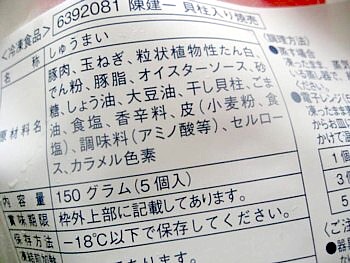 <冷凍食品> 6392081 陳建一 貝柱入り焼売
名称 しゅうまい
原材料名 豚肉、玉ねぎ、粒状植物性たん白、
でん粉、豚脂、オイスターソース、砂
糖、しょう油、大豆油、干し貝柱、ごま
油、食塩、香辛料、皮(小麦粉、食
塩)、調味料(アミノ酸等)、セルロー
ス、カラメル色素
内容量 150グラム(5個入)
賞味期限 枠外上部に記載してあります。
保存方法 −18℃以下で保存してください。
凍結前加熱
調理方法
1個
3個
5個
●ご注意